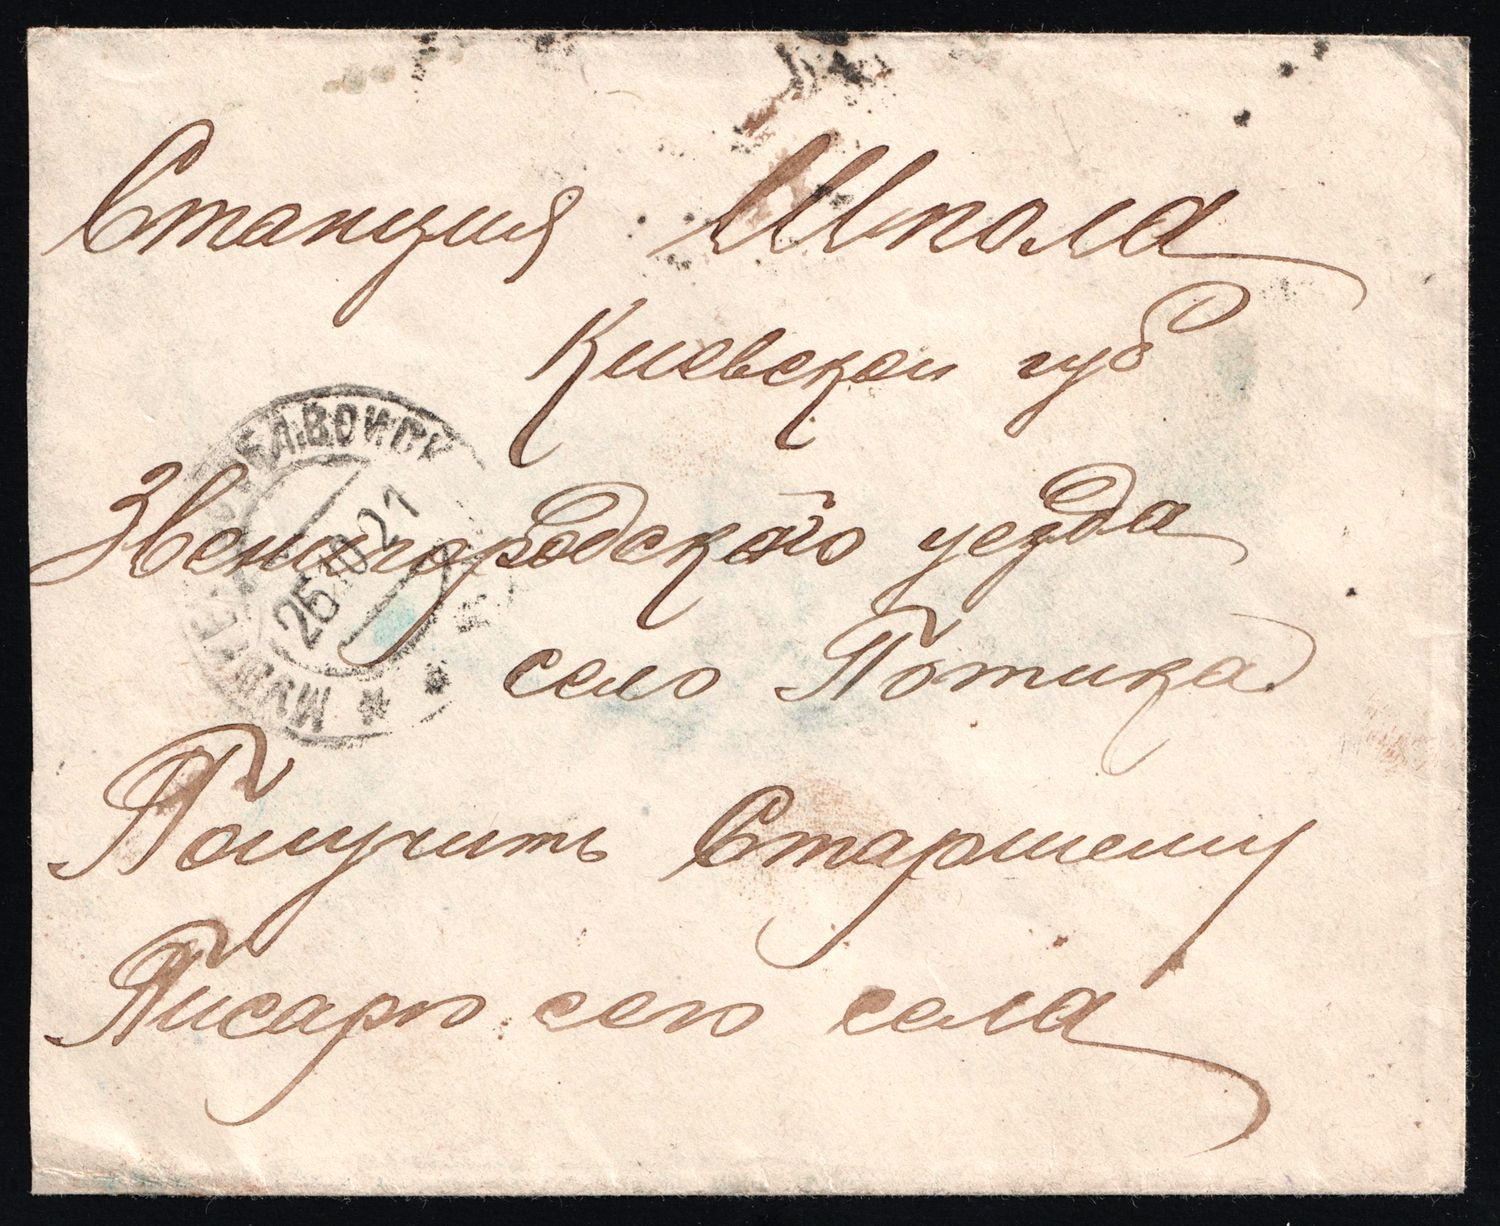 Станция Шпола
Киевской губ
Звенигородского уезда
село Потика
Получить Старшему
Писарю сего села
25 10 21